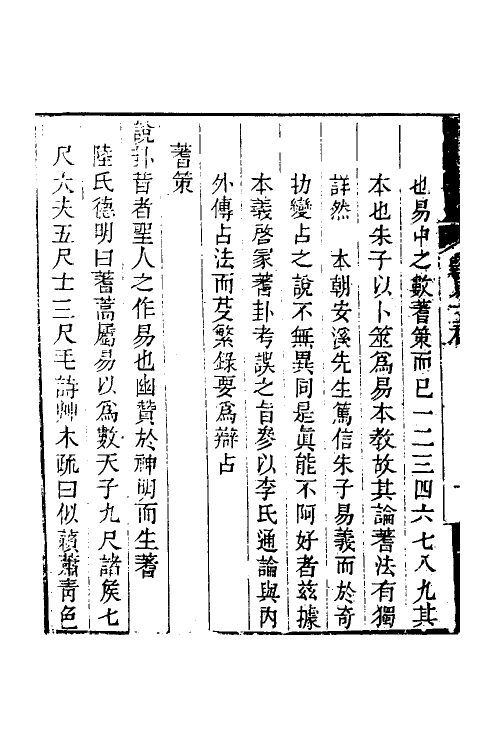 也易中之數蓍策而已一二三四六七八九其
本也朱子以卜筮爲易本教故其論蓍法有獨
詳然　本朝安溪先生篤信朱子易義而於奇
扐變占之說不無異同是眞能不阿好者兹據
本義啓蒙蓍卦考誤之旨參以李氏通論與內
外傳占法而芟繁錄要爲辯占
蓍策
說卦昔者聖人之作易也幽贊於神明而生蓍
陸氏德明曰蓍蒿屬易以爲數天子九尺諸矦七
尺大夫五尺士三尺毛詩艸木疏曰似藾蕭靑色